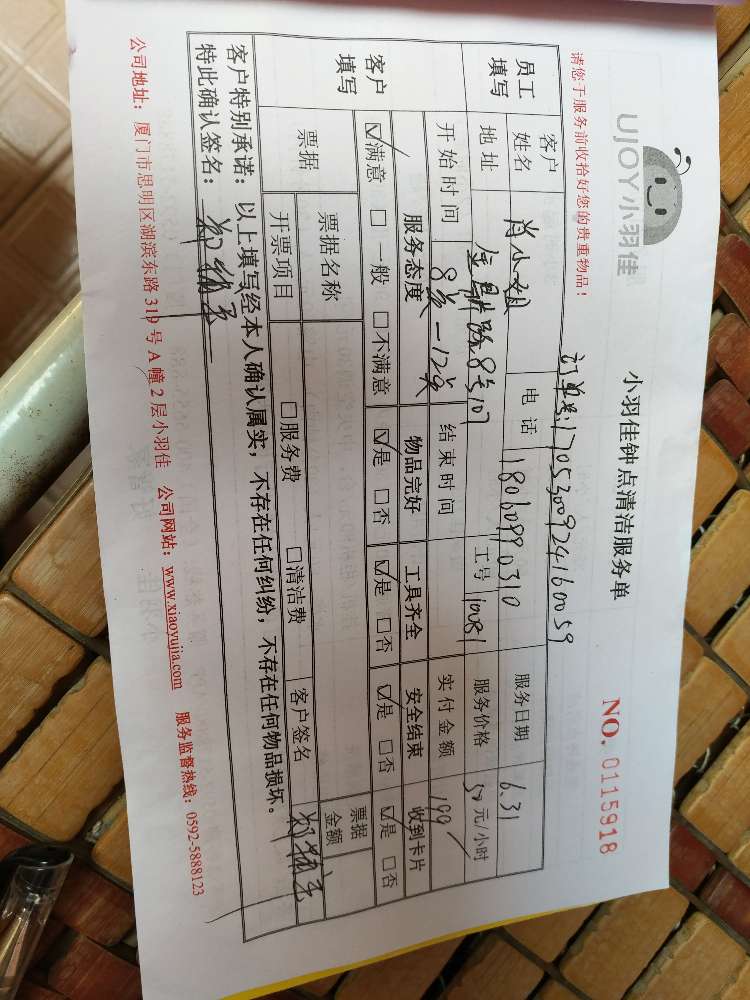 UJOY小羽佳
小羽佳钟点清洁服务单
NO. 0115918
请您于服务前收拾好您的贵重物品！
订单号:1705300924160059
员工填写 客户姓名 肖小姐 电话 18060990310 服务日期 6.31
地址 金鼎路8号107 工号 10081 服务价格 50元/小时
开始时间 8点-12点 结束时间 实付金额 199
客户填写 服务态度 物品完好 工具齐全 安全结束 收到卡片
☑满意 □一般 □不满意 ☑是 □否 ☑是 □否 ☑是 □否 ☑是 □否
票据 票据名称 票据金额
开票项目 □服务费 □清洁费 客户签名
客户特别承诺：以上填写经本人确认属实，不存在任何纠纷，不存在任何物品损坏。
特此确认签名：
公司地址：厦门市思明区湖滨东路319号A幢2层小羽佳 公司网站：www.xiaoyujia.com 服务监督热线：0592-5888123